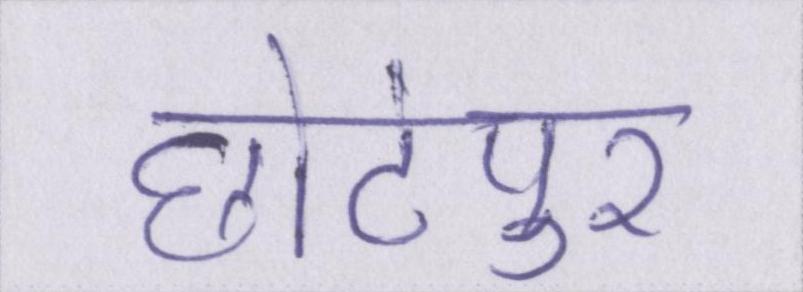 छोटंपुर